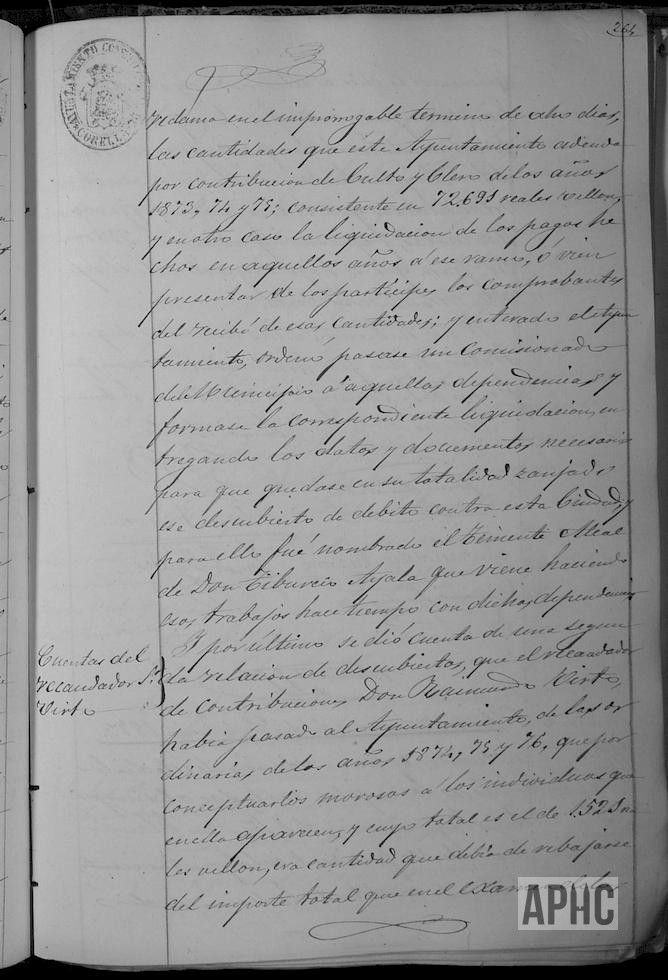 264
AYUNTAMIENTO CONST
CORELLA
reclama en el improrrogable termino de ocho dias,
las cantidades que este Ayuntamiento adeuda
por contribucion de Culto y Clero de los años
1873, 74 y 75; consistente en 72.691 reales vellon,
y en otro caso la liquidacion de los pagos he
chos en aquellos años á ese ramo, ó vien
presentar de los partícipes los comprobantes
del recibí de esas cantidades; y enterado el Ayun
tamiento, ordenó pasase un Comisionado
del Municipio á aquellas dependencias y
formase la correspondiente liquidacion, en
tregando los datos y documentos necesarios
para que quedase en su totalidad zanjado
ese descubierto de debito contra esta Ciudad, y
para ello fué nombrado el Teniente Alcal
de Don Tiburcio Ayala que viene haciendo
esos trabajos hace tiempo con dichas dependencias
Cuentas del
recaudador Sr
Virto
Y por último se dió cuenta de una segun
da relacion de descubiertos, que el recaudador
de contribuciones Don Raimundo Virto,
habia pasado al Ayuntamiento, de las or
dinarias de los años 1874, 75 y 76, que por
conceptuarlos morosos á los individuos que
en ella aparecen, y cuyo total es el de 1521 rea
les vellon, era cantidad que debia de rebajarse
del importe total que en el examen de las
APHC